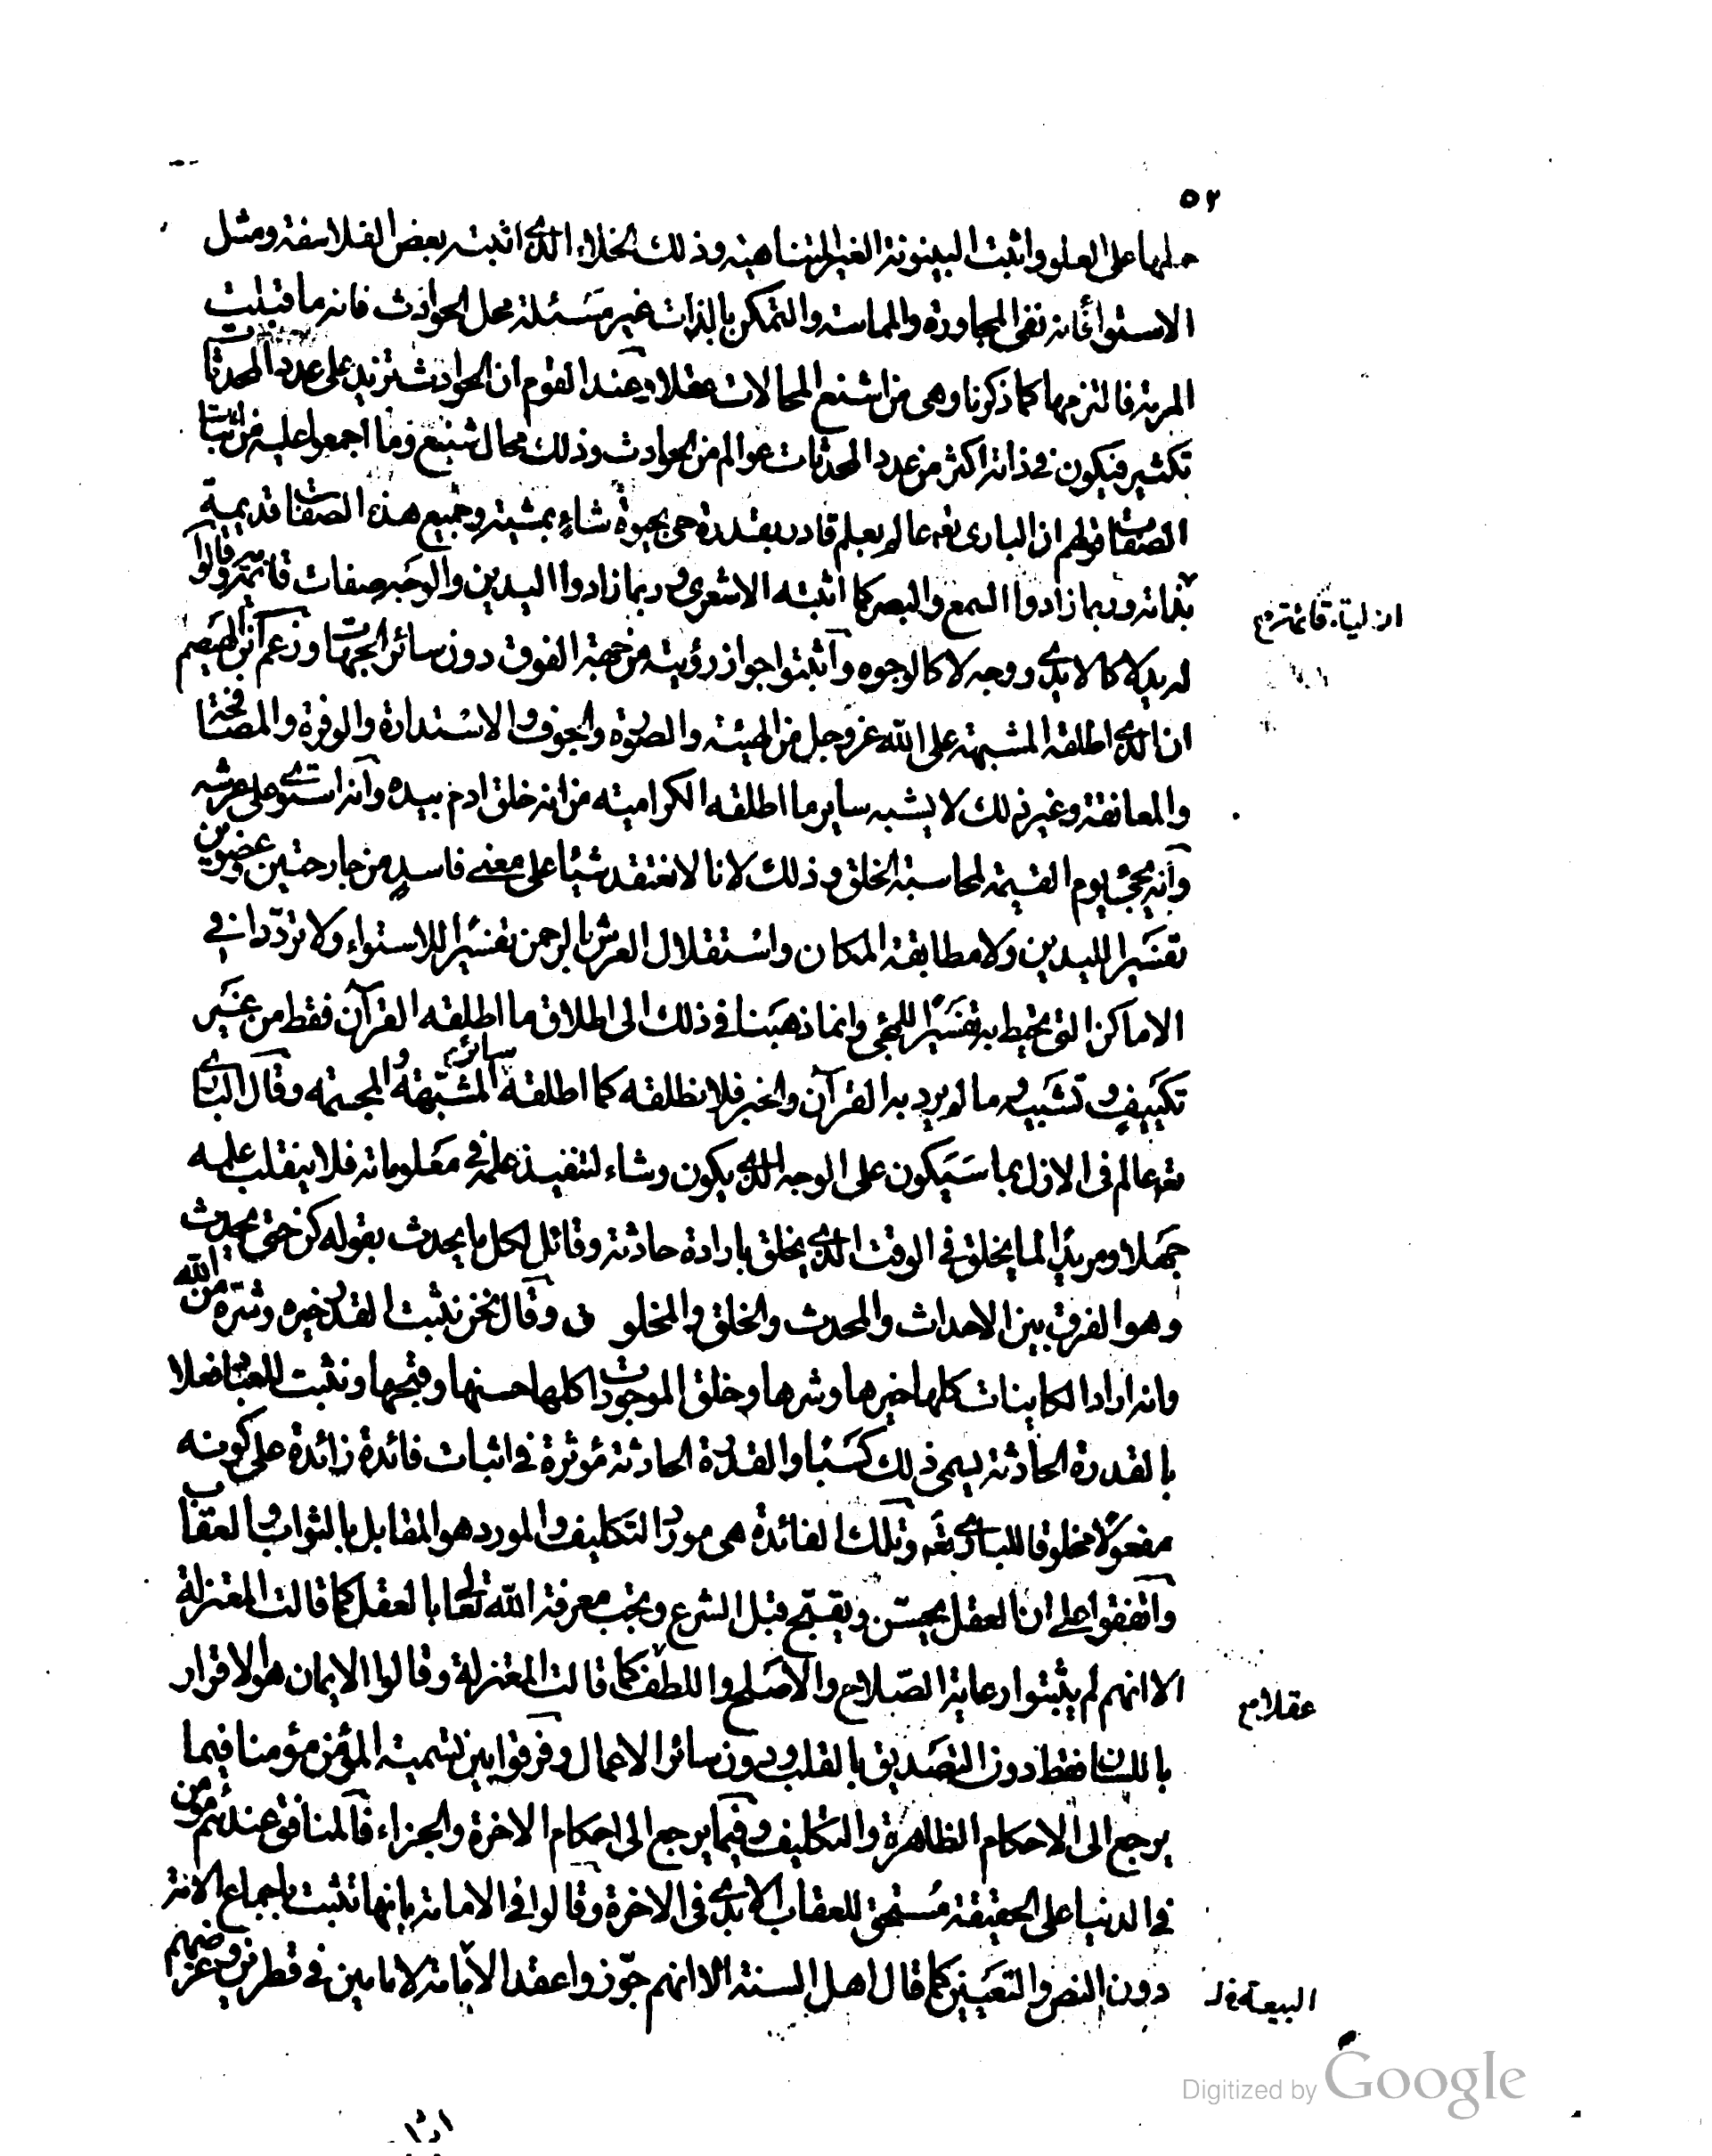 ٥٢
حملها على العلو واثبت البينونة الغير المتناهية وذلك الخلاء الذى اثبته بعض الفلاسفة ومثل
الاستواء فانه نفى المجاورة والمماسة والتمكن بالذات غير مسئلة محل الحوادث فانه ما قبلت
المرمة فالتزمها كما ذكرنا وهى من اشنع المحالات عقلا وعند القوم ان الحوادث تزيد على عدد المحدثات
بكثير فيكون فى ذاته اكثر من عدد المحدثات عوالم من الحوادث وذلك محال شنيع ومما اجمعوا عليه من اثبات
الصفات قولهم ان البارى تعه عالم بعلم قادر بقدرة حى بحيوة شاء بمشية وجميع هذه الصفات قديمية
بذاته وربما زادوا السمع والبصر كما اثبته الاشعرى وربما زادوا اليدين والوجه صفات قائمة به وقالوا
ازلية قائمة م
له يد لا كالايدى ووجه لا كالوجوه وآثبتوا جواز رؤيته من جهة الفوق دون سائر الجهات وزعم آبن الهيصم
ان الذى اطلقه المشبهة على الله عز وجل من الهيئة والصورة والجوف والاستدارة والوفرة والمصافحة
والمعانقة وغير ذلك لا يشبه ساير ما اطلقه الكرامية من انه خلق ادم بيده وآنه استوى على عرشه
وآنه يجئ يوم القيمة لمحاسبة الخلق وذلك لانا لا نعتقد شيئا على معنى فاسد من جارحتين عضوين
تفسيرا لليدين ولا مطابقة المكان واستقلال العرش بالرحمن تفسيرا للاستواء ولا ترددا فى
الاماكن التى تحيط به تفسيرا للمجئ وانما ذهبنا فى ذلك الى اطلاق ما اطلقه القرآن فقط من غير
تكييف وتشبيه وما لم يرد به القرآن والخبر فلا نطلقه كما اطلقه سائر المشبهة والمجسمة وقال البارى
تعه عالم فى الازل بما سيكون على الوجه الذى يكون وشاء لتنفيذ علمه فى معلوماته فلا ينقلب علمه
جهلا ومريد لما يخلق فى الوقت الذى يخلق بارادة حادثة وقائل لكل ما يحدث بقوله كن حتى يحدث
وهو الفرق بين الاحداث والمحدث والخلق والمخلوق وقال نحن نثبت القدر خيره وشره من الله
وانه اراد الكاينات كلها خيرها وشرها وخلق الموجودات كلها حسنها وقبحها ونثبت للعبد فعلا
بالقدرة الحادثة يسمى ذلك كسبا والقدرة الحادثة مؤثرة فى اثبات فائدة زائدة على كونه
مفعولا مخلوقا للبارى تعه وتلك الفائدة هى مورد التكليف والمورد هو المقابل بالثواب والعقاب
واتفقوا على ان العقل يحسن ويقبح قبل الشرع ويجب معرفة الله تعالى بالعقل كما قالت المعتزلة
الا انهم لم يثبتوا رعاية الصلاح والاصلح واللطف كما قالت المعتزلة وقالوا الايمان هو الاقرار
عقلا م
باللسان فقط دون التصديق بالقلب ودون سائر الاعمال وفرقوا بين تسمية المؤمن مؤمنا فيما
يرجع الى الاحكام الظاهرة والتكليف وفيما يرجع الى احكام الاخرة والجزاء فآلمنافق عندهم مؤمن
فى الدنيا على الحقيقة مستحق للعقاب الابدى فى الاخرة وقالوا فى الامامة بانها تثبت باجماع الامة
دون النص والتعيين كما قال اهل السنة الا انهم جوزوا عقد الامامة لامامين فى قطرين وغرضهم
البيعة
Digitized by Google